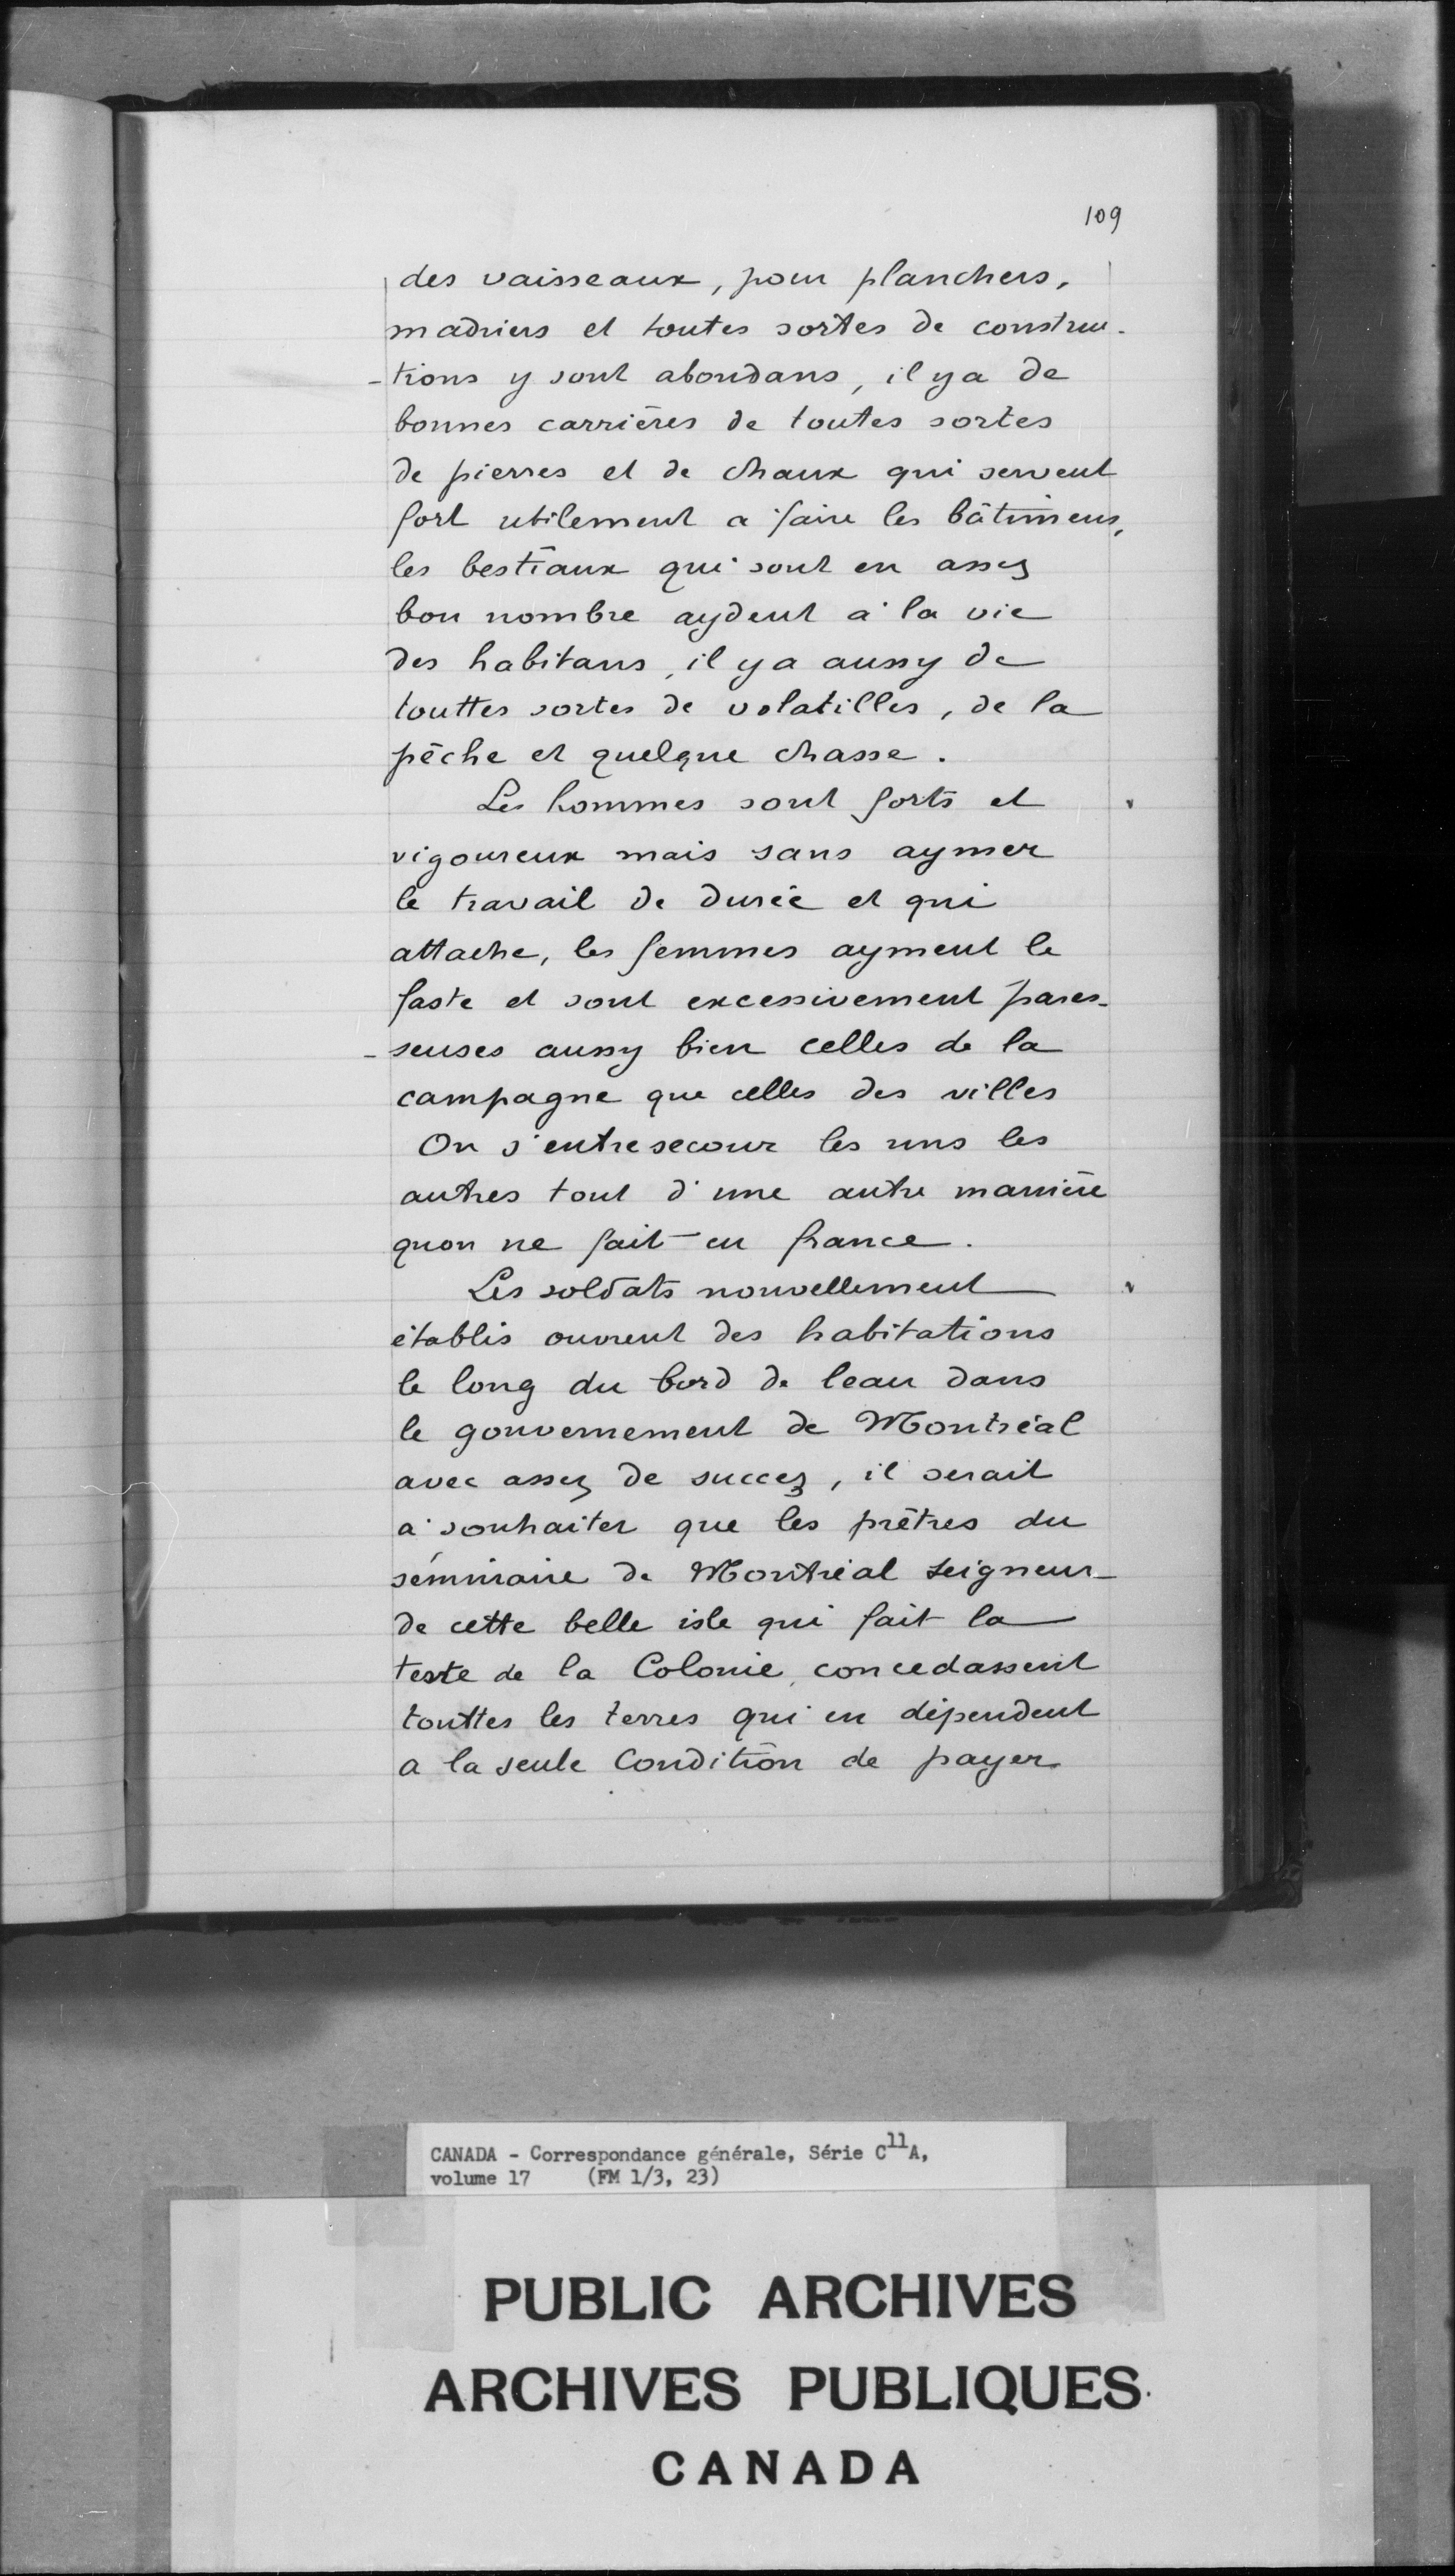 109
des vaisseaux, pour planchers,
madriers et toutes sortes de construc-
-tions y sont abondans, il y a de
bonnes carrières de toutes sortes
de pierres et de chaux qui servent
fort utilement a faire les bâtimens,
les bestiaux qui sont en assez
bon nombre aydent à la vie
des habitans, il y a aussy de
touttes sortes de volatilles, de la
pêche et quelque chasse.
Les hommes sont forts et
vigoureux mais sans aymer
le travail de durée et qui
attache, les femmes ayment le
faste et sont excessivement pares-
-seuses aussy bien celles de la
campagne que celles des villes
On s'entresecour les uns les
autres tout d'une autre manière
quon ne fait en france.
Les soldats nouvellement
établis ouvrent des habitations
le long du bord de leau dans
le gouvernement de Montréal
avec assez de succez, il serait
a souhaiter que les prêtres du
séminaire de Montréal seigneur
de cette belle isle qui fait la
teste de la Colonie, concedassent
touttes les terres qui en dépendent
a la seule Condition de payer
CANADA - Correspondance générale, Série C11A,
volume 17 (FM 1/3, 23)
PUBLIC ARCHIVES
ARCHIVES PUBLIQUES
CANADA